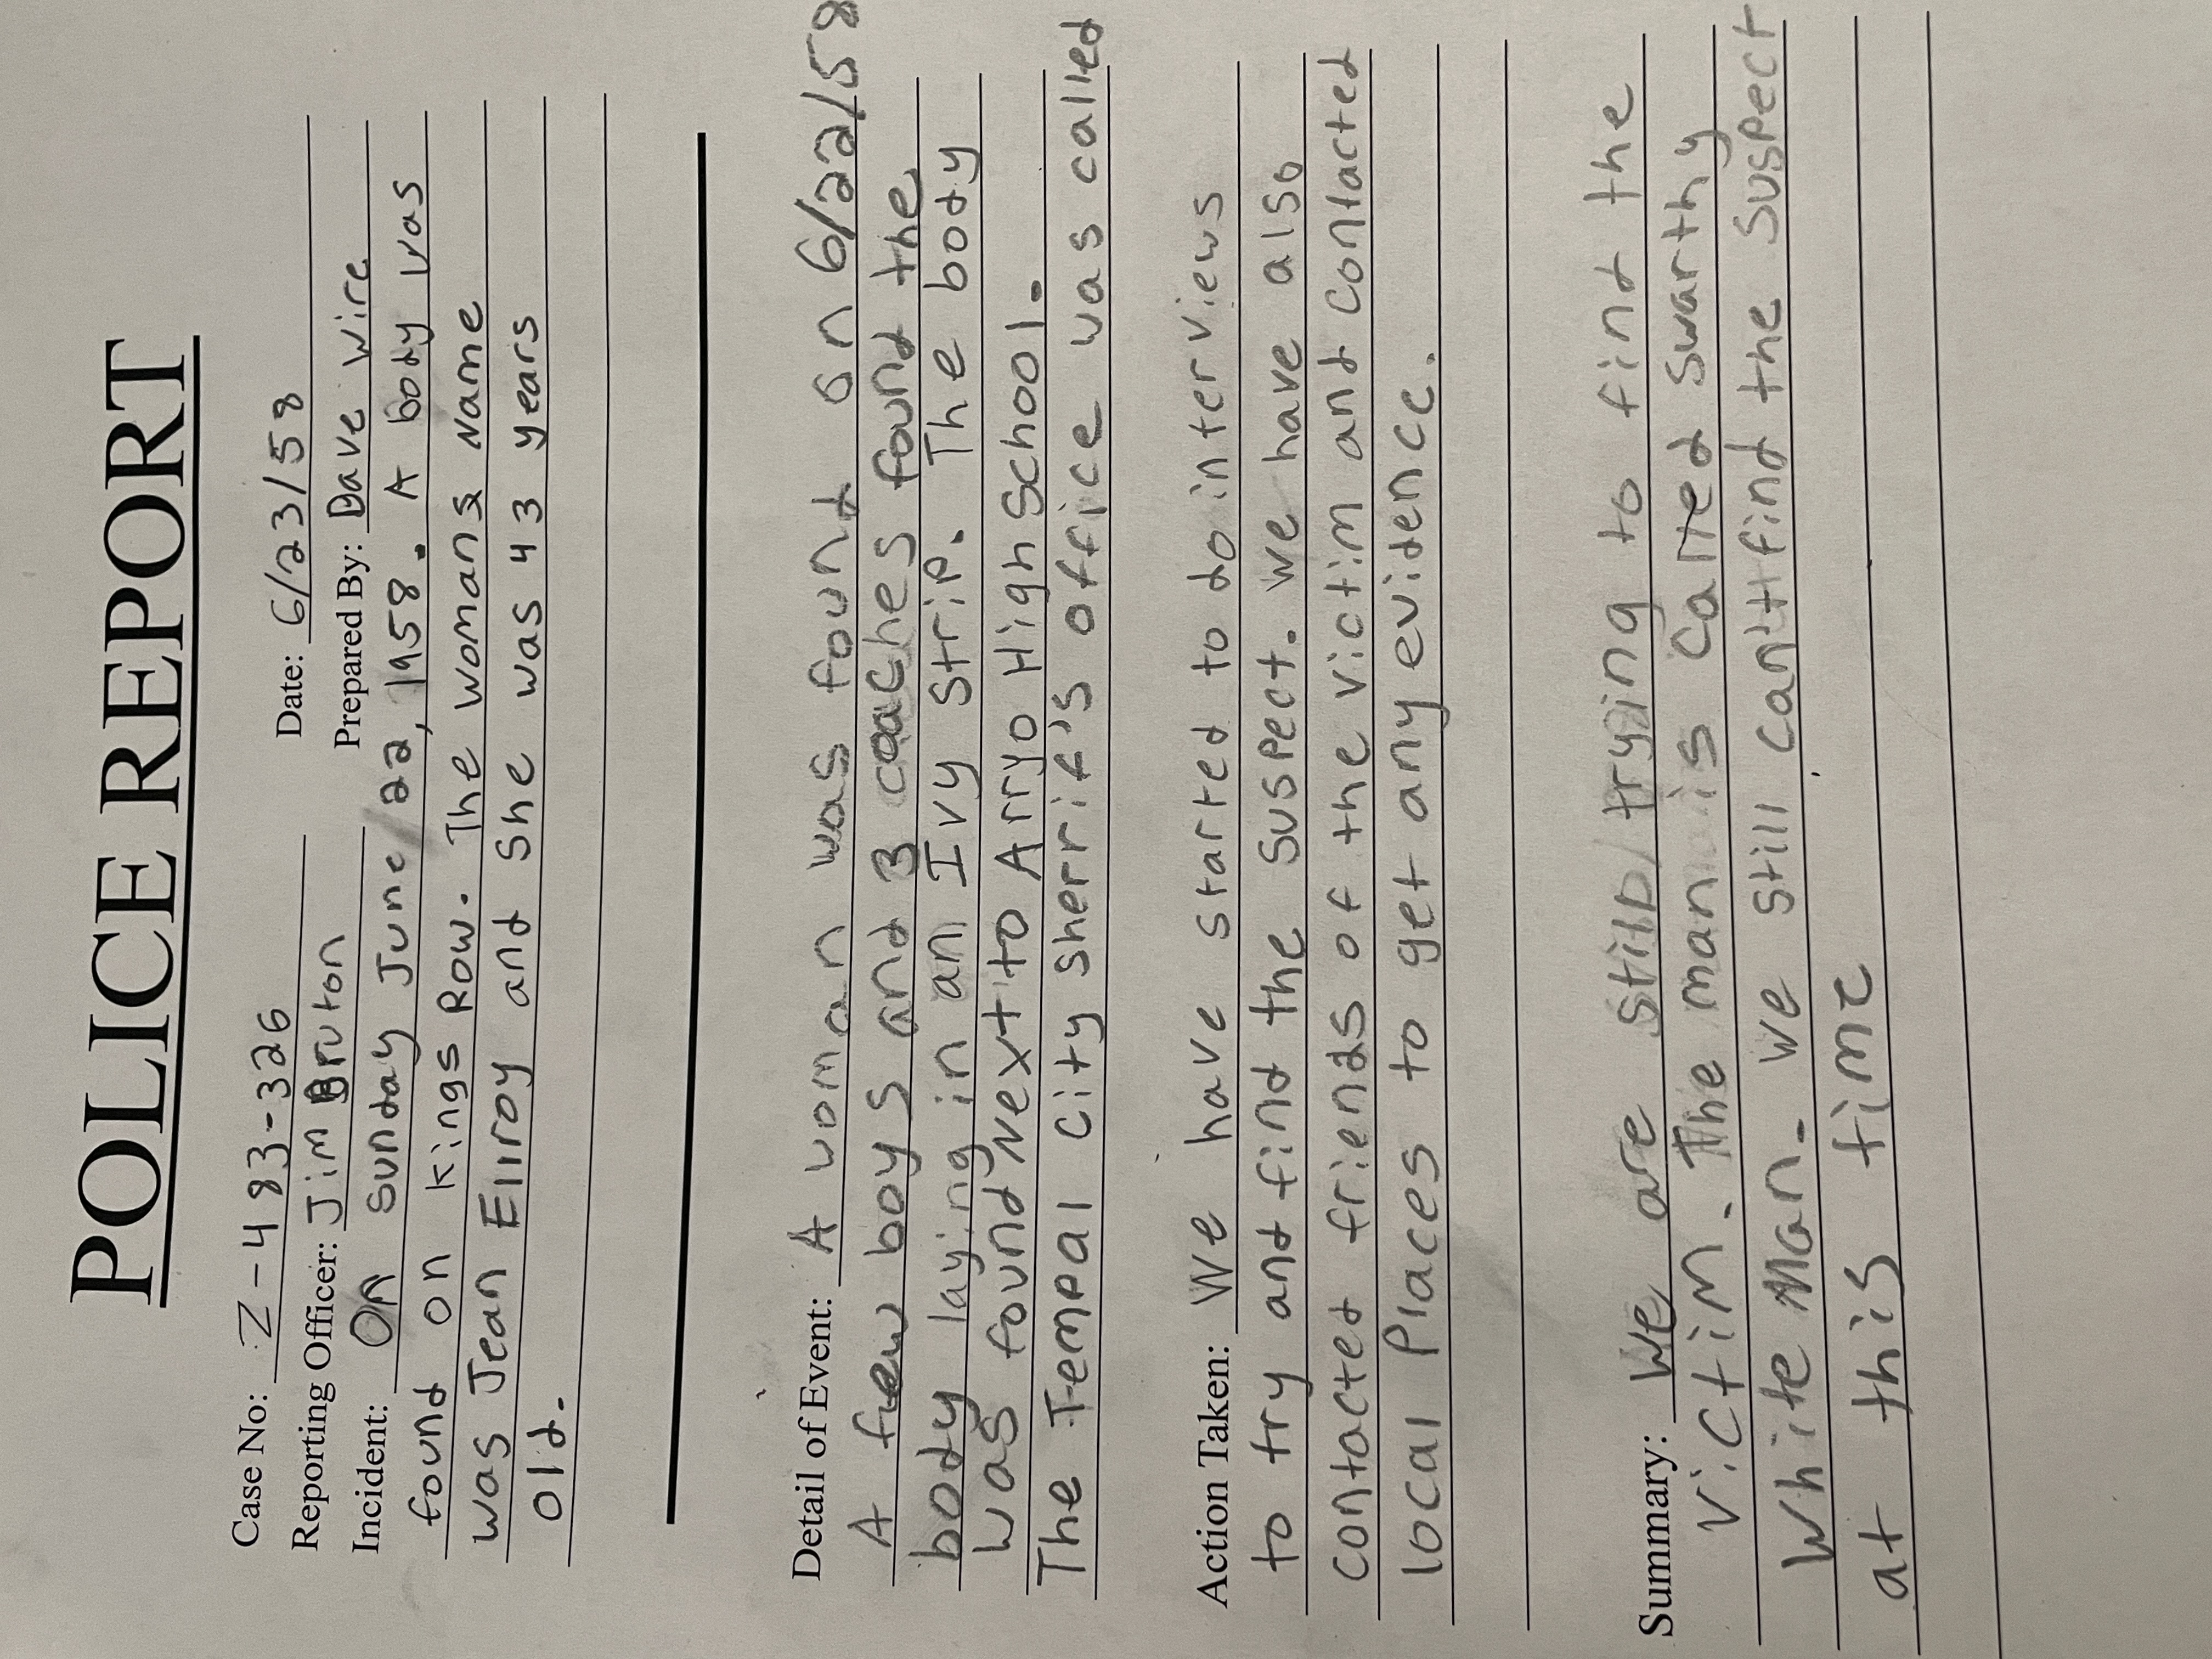 POLICE REPORT
Case No: Z-483-326
Date: 6/23/58
Reporting Officer: Jim Bruton
Prepared By: Dave Wire
Incident: On Sunday June 22, 1958. A body was
found on Kings Row. The womans Name
was Jean Ellroy and She was 43 years
old.
Detail of Event: A woman was found on 6/22/58
A few boys and 3 coaches found the
body laying in an Ivy strip. The body
was found Next to Arryo High School.
The Tempal City Sherrif's office was called
Action Taken: We have started to do interviews
to try and find the suspect. We have also
contacted friends of the victim and contacted
local Places to get any evidence.
Summary: We are still trying to find the
victim. The man is called Swarthy
White Man. We still can't find the Suspect
at this time